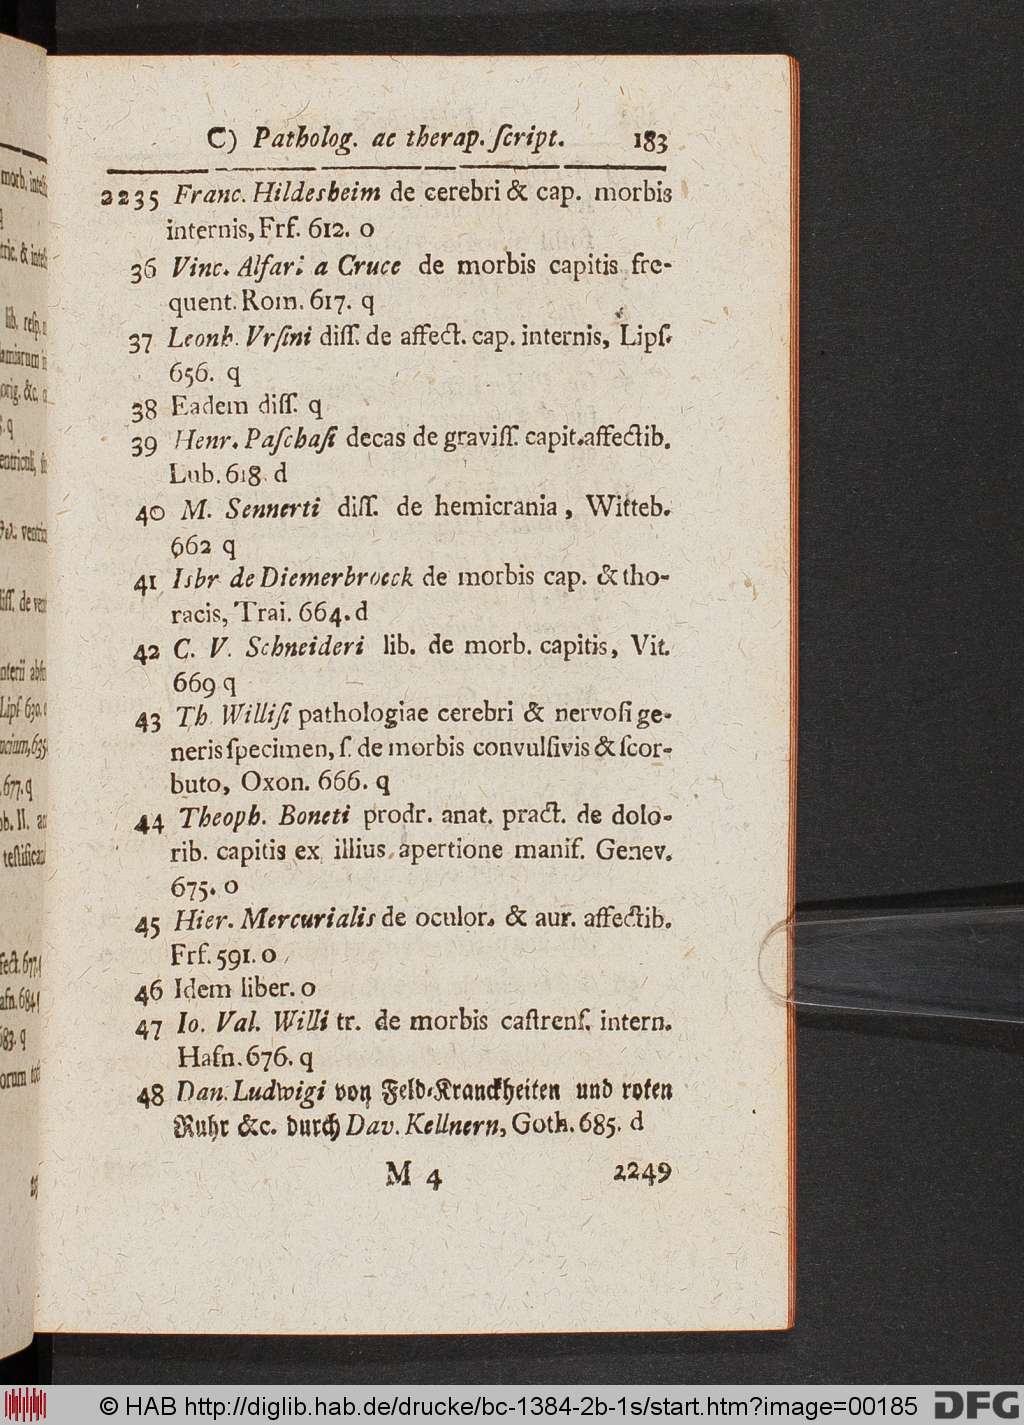 C) Patholog. ac therap. ſcript. 183
2235 Franc. Hildesheim de cerebri & cap. morbis
internis, Frf. 612. o
36 Vinc. Alſari a Cruce de morbis capitis fre-
quent. Rom. 617. q
37 Leonh. Vrſini diſſ. de affect. cap. internis, Lipſ.
656. q
38 Eadem diſſ. q
39 Henr. Paſchaſi decas de graviſſ. capit. affectib.
Lub. 618. d
40 M. Sennerti diſſ. de hemicrania, Witteb.
662 q
41 Isbr de Diemerbroeck de morbis cap. & tho-
racis, Trai. 664. d
42 C. V. Schneideri lib. de morb. capitis, Vit.
669 q
43 Th. Williſi pathologiae cerebri & nervoſi ge-
neris ſpecimen, ſ. de morbis convulſivis & ſcor-
buto, Oxon. 666. q
44 Theoph. Boneti prodr. anat. pract. de dolo-
rib. capitis ex illius apertione manif. Genev.
675. o
45 Hier. Mercurialis de oculor. & aur. affectib.
Frf. 591. o
46 Idem liber. o
47 Io. Val. Willi tr. de morbis caſtrenſ. intern.
Hafn. 676. q
48 Dan. Ludwigi von Feld-Kranckheiten und roten
Ruhr &c. durch Dav. Kellnern, Goth. 685. d
M 4 2249
© HAB http://diglib.hab.de/drucke/bc-1384-2b-1s/start.htm?image=00185 DFG